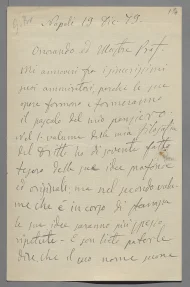 Napoli 19 Dic 79.
Onorando ed Illustre Prof.
Mi annoveri fra i
suoi ammiratori, perchè le sue
opere formano e formeranno
il pascolo del mio pensiero.
Nel 1. volume della mia Filosofia
del Dritto ho di sovente fatto
tesoro delle sue idee
ed originali, ma nel secondo volu
me che è in corso di stampa
le sue idee saranno più spesso
ripetute. E con
dire, che il suo nome suona